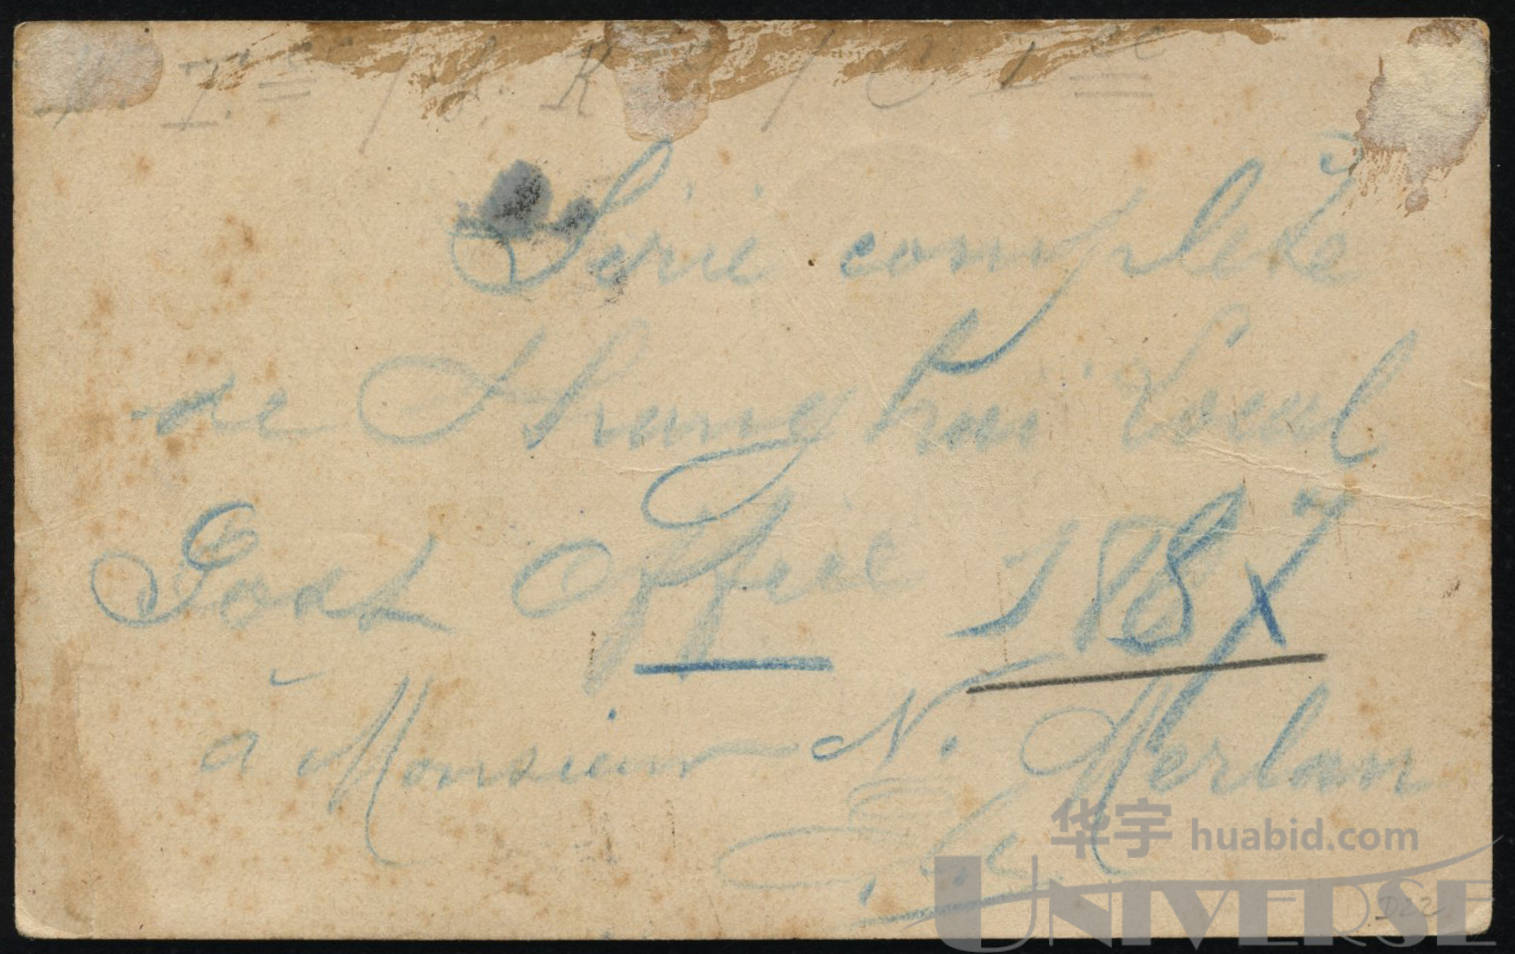 Série complète
de Shanghai Local
Post Office 1887
à Monsieur N. Merlan
华宇 huabid.com
UNIVERSE
D22